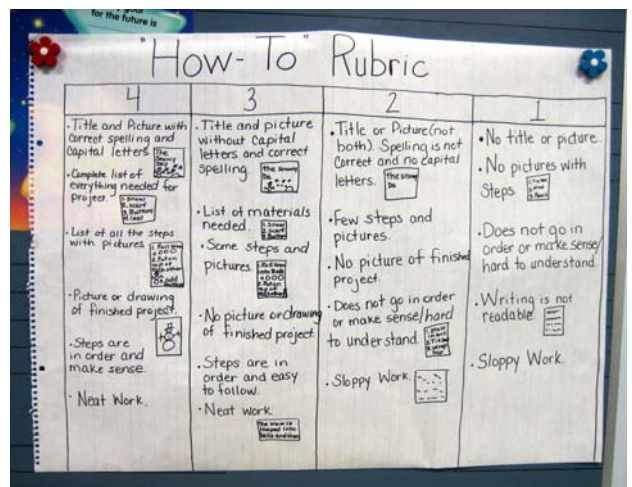 for the future is
"How-To" Rubric
4
·Title and Picture with
correct spelling and
capital letters
·Complete list of
everything needed for
project.
·List of all the steps
with pictures
·Picture or drawing
of finished project.
·Steps are
in order and
make sense.
·Neat Work.
3
·Title and picture
without capital
letters and correct
spelling.
the snowy
·List of materials
needed.
·Some steps and
pictures.
·No picture or drawing
of finished project.
·Steps are in
order and easy
to follow.
·Neat work
The snow is
shaped into
balls and then
2
·Title or Picture(not
both). Spelling is not
correct and no capital
letters.
the snowy
·Few steps and
pictures.
·No picture of finished
project.
·Does not go in order
or make sense/hard
to understand.
·Sloppy Work.
1
·No title or picture.
·No pictures with
Steps
·Does not go in
order or make sense/
hard to understand.
·Writing is not
readable
·Sloppy Work.